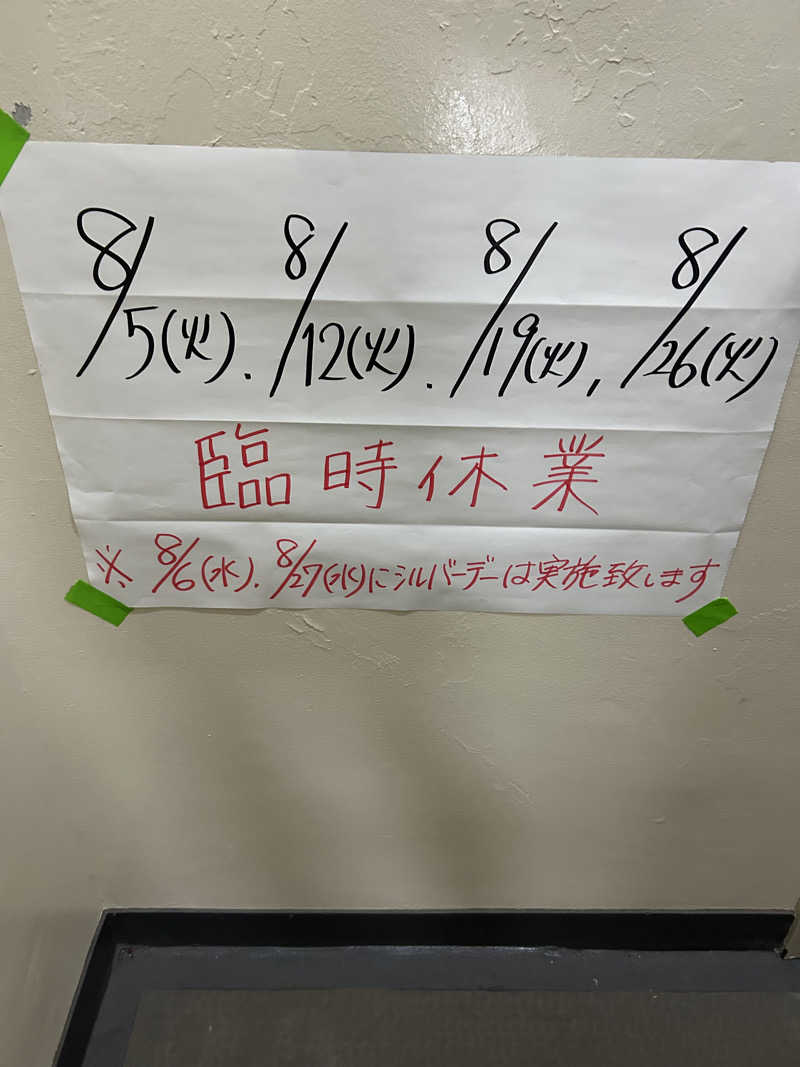 8/5(火). 8/12(火). 8/19(火), 8/26(火)
臨時休業
※ 8/6(水). 8/27(水)にシルバーデーは実施致します